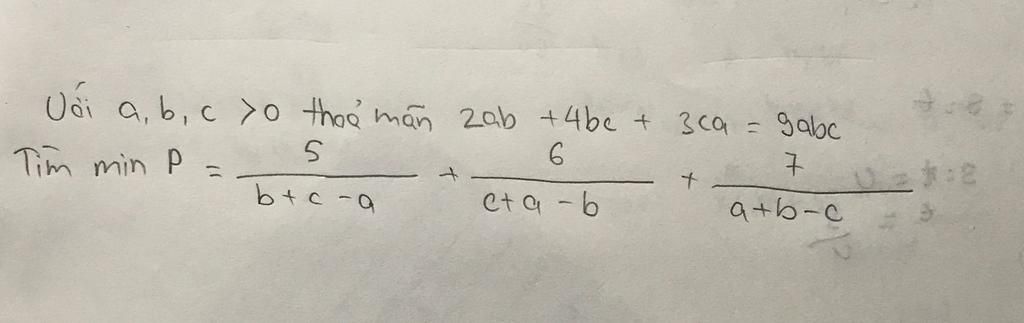 Với a, b, c >0 thoả mãn 2ab + 4bc + 3ca = 9abc
Tìm min P = 5/(b+c-a) + 6/(c+a-b) + 7/(a+b-c)